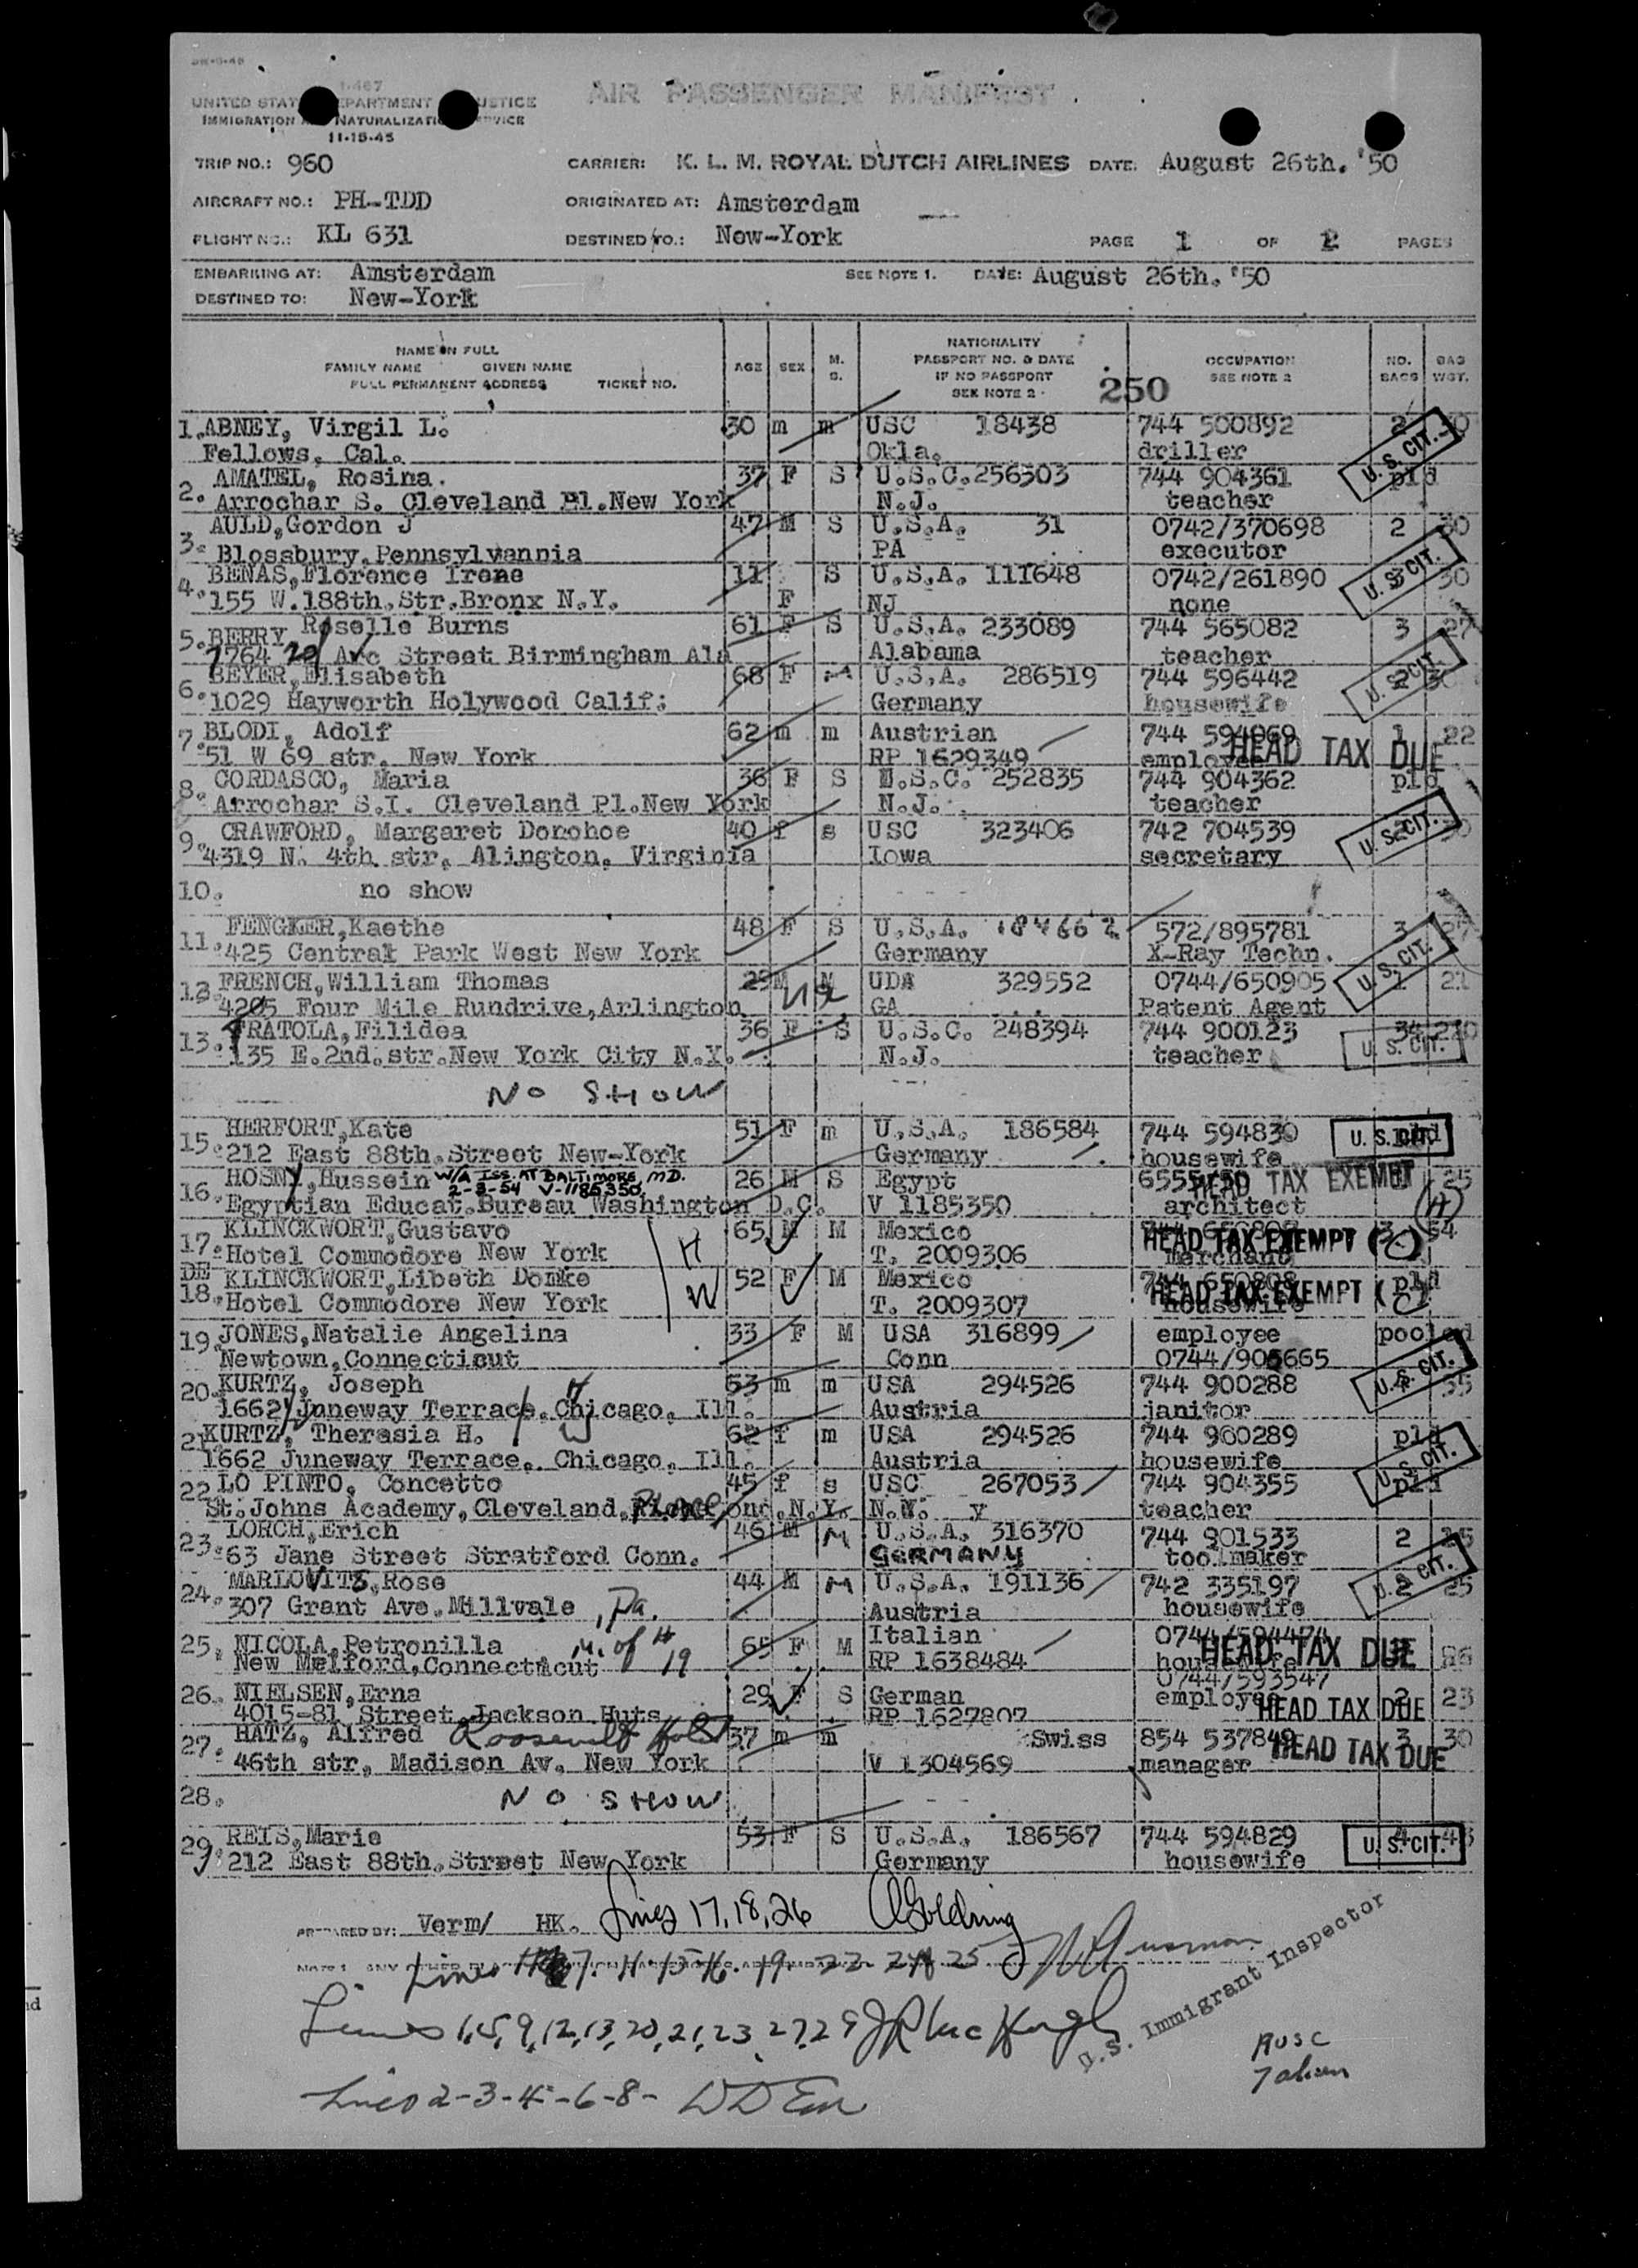 I-467
UNITED STATES DEPARTMENT OF JUSTICE
IMMIGRATION AND NATURALIZATION SERVICE
11-15-45
AIR PASSENGER MANIFEST
TRIP NO.: 960 CARRIER: K. L. M. ROYAL DUTCH AIRLINES DATE: August 26th. '50
AIRCRAFT NO.: PH-TDD ORIGINATED AT: Amsterdam
FLIGHT NO.: KL 631 DESTINED TO.: New-York PAGE 1 OF 2 PAGES
EMBARKING AT: Amsterdam SEE NOTE 1. DATE: August 26th. '50
DESTINED TO: New-York
NAME IN FULL
FAMILY NAME GIVEN NAME
FULL PERMANENT ADDRESS TICKET NO.
AGE SEX M. S.
NATIONALITY
PASSPORT NO. & DATE
IF NO PASSPORT
SEE NOTE 2
250
OCCUPATION
SEE NOTE 2
NO. BAGS
BAG WGT.
1. ABNEY, Virgil L. 30 m m USC 18438 744 500892 2 30
Fellows, Cal. Okla. driller U. S. CIT.
2. AMATEL, Rosina. 37 F S U.S.C. 256303 744 904361 pld
Arrochar S. Cleveland Pl.New York N.J. teacher
3. AULD,Gordon J 47 M S U.S.A. 31 0742/370698 2 30
Blossbury.Pennsylvannia PA executor
4. BENAS,Florence Irene 11 S U.S.A. 111648 0742/261890 30
155 W.188th.Str.Bronx N.Y. F NJ none U. S. CIT.
5. BERRY, Roselle Burns 61 F S U.S.A. 233089 744 565082 3 27
1764 Avc Street Birmingham Ala Alabama teacher
6. BEYER,Elisabeth 68 F M U.S.A. 286519 744 596442 2
1029 Hayworth Holywood Calif: Germany housewife U. S. CIT.
7. BLODI, Adolf 62 m m Austrian 744 594069 1 22
51 W 69 str. New York RP 1629349 employee HEAD TAX DUE
8. CORDASCO, Maria 36 F S U.S.C. 252835 744 904362 pld
Arrochar S.I. Cleveland Pl.New York N.J. teacher
9. CRAWFORD, Margaret Donohoe 40 f s USC 323406 742 704539
4319 N. 4th str. Alington, Virginia Iowa secretary U. S. CIT.
10. no show
11. FENGKER,Kaethe 48 F S U.S.A. 184662 572/895781 3 27
425 Central Park West New York Germany X-Ray Techn. U. S. CIT.
12. FRENCH,William Thomas 29 M M UDA 329552 0744/650905 1 21
4205 Four Mile Rundrive,Arlington Va GA Patent Agent
13. FRATOLA,Filidea 36 F S U.S.C. 248394 744 900123 34 210
135 E.2nd.str.New York City N.Y. N.J. teacher U. S. CIT.
NO SHOW
15. HERFORT,Kate 51 F m U.S.A. 186584 744 594830 U. S. CIT.
212 East 88th.Street New-York Germany housewife
16. HOSNY,Hussein W/A ISS. AT BALTIMORE, MD. 26 M S Egypt HEAD TAX EXEMPT 25
2-3-54 V-1185350.
Egyptian Educat.Bureau Washington D.C. V 1185350 architect (A)
17. KLINCKWORT,Gustavo 65 M M Mexico 3 54
Hotel Commodore New York H T. 2009306 merchant HEAD TAX EXEMPT (C)
DE
18. KLINCKWORT,Libeth Domke 52 F M Mexico 744 650808 pld
Hotel Commodore New York W T. 2009307 housewife HEAD TAX EXEMPT (C)
19. JONES,Natalie Angelina 33 F M USA 316899 employee pooled
Newtown,Connecticut Conn 0744/905665 U. S. CIT.
20. KURTZ, Joseph H 53 m m USA 294526 744 900288 35
1662 Juneway Terrace, Chicago, Ill. Austria janitor
21. KURTZ, Therasia H. W 62 f m USA 294526 744 900289 pld
1662 Juneway Terrace, Chicago, Ill. Austria housewife U. S. CIT.
22. LO PINTO, Concetto 45 f s USC 267053 744 904355 pld
St.Johns Academy,Cleveland, PLACE N.Y. N.Y. teacher
23. LORCH,Erich 46 M M U.S.A. 316370 744 901533 2
63 Jane Street Stratford Conn. GERMANY toolmaker
24. MARLOVITS,Rose 44 M M U.S.A. 191136 742 335197 2 25
307 Grant Ave.Millvale, Pa. Austria housewife U. S. CIT.
25. NICOLA,Petronilla M. of # 19 65 F M Italian 0744/594474
New Melford,Connecticut RP 1638484 housewife HEAD TAX DUE
26. NIELSEN,Erna 29 F S German 0744/593547 2 23
4015-81 Street Jackson Huts RP 1627807 employee HEAD TAX DUE
27. HATZ, Alfred Roosevelt Hotel 37 m m Swiss 854 537849 3 30
46th str, Madison Av. New York V 1304569 manager HEAD TAX DUE
28. NO SHOW
29. REIS,Marie 53 F S U.S.A. 186567 744 594829 4
212 East 88th.Street New York Germany housewife U. S. CIT.
PREPARED BY: Verm/ HK. Lines 17,18,26 Golding
Lines 7. 11-15-16. 19- 22- 24 25
Lines 1,5,9,12,13,20,21,23 27,29
U.S. Immigrant Inspector
Lines 2-3-4-6-8-
AUSC
7 alien